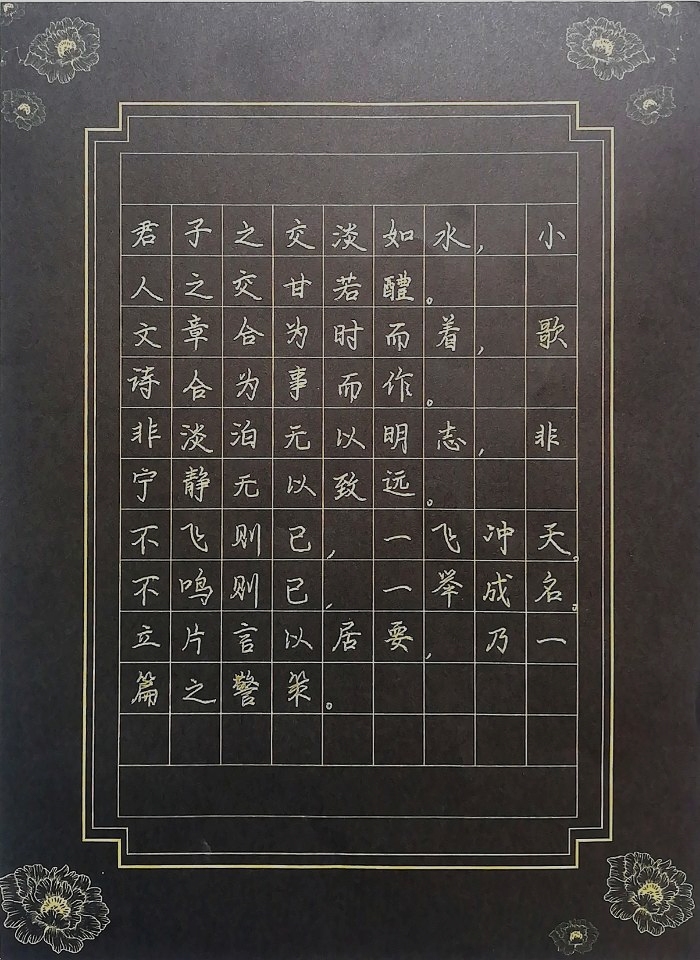 君子之交淡如水，小
人之交甘若醴。
文章合为时而着，歌
诗合为事而作。
非淡泊无以明志，非
宁静无以致远。
不飞则已，一飞冲天。
不鸣则已，一举成名。
立片言以居要，乃一
篇之警策。